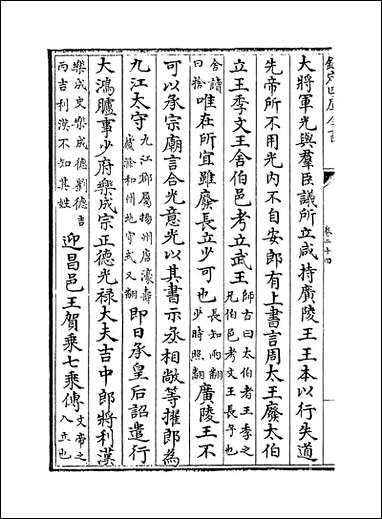 欽定四庫全書
卷二十四
大將軍光與羣臣議所立咸持廣陵王王本以行失道
先帝所不用光內不自安郎有上書言周太王廢太伯
立王季文王舍伯邑考立武王師古曰太伯者王季之兄伯邑考文王長子也
舍讀曰捨唯在所宜雖廢長立少可也長知兩翻少時照翻廣陵王不
可以承宗廟言合光意光以其書示丞相敞等擢郎為
九江太守九江郡屬揚州唐濠壽廬滁和州地守式又翻即日承皇后詔遣行
大鴻臚事少府樂成宗正德光禄大夫吉中郎將利漢
樂成史樂成德劉德吉丙吉利漢不知其姓迎昌邑王賀乘七乘傳文帝之入立也